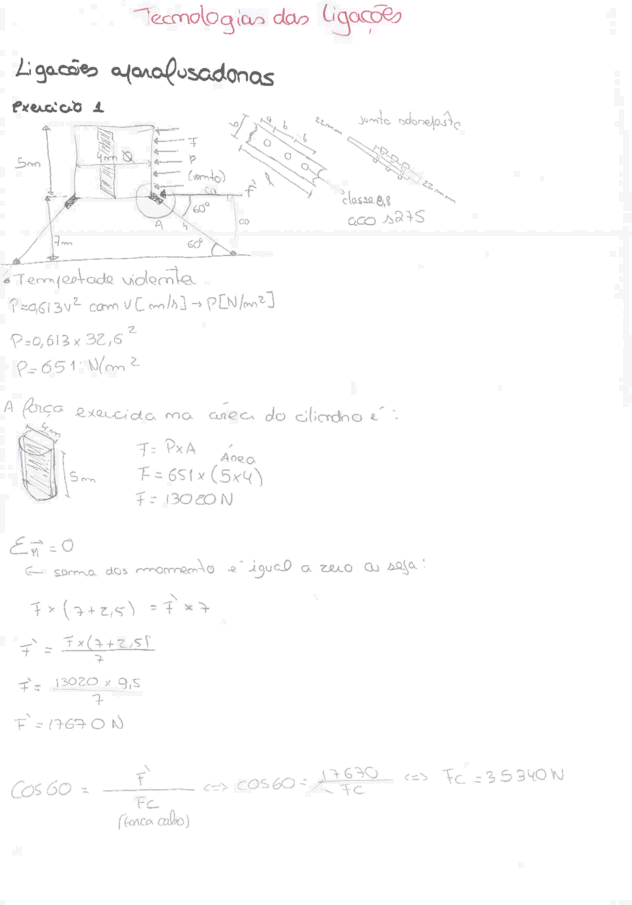 Tecnologias das Ligações
Ligações aparafusadoras
Exercício 1
5m
4m Ø
F
P
(vento)
F'
CA
60°
A
h
CO
7m
60°
a
b
b
l
classe 8,8
aço s275
junta sobreposta
22mm
22mm
• Tempestade violenta
P=0,613v² com v[m/s]→P[N/m²]
P=0,613 x 32,6²
P=651 N/m²
A força exercida na área do cilindro é:
4m
5m
F= P x A
Área
F=651 x (5x4)
F=13020 N
Σ M = 0
← soma dos momento é igual a zero ou seja:
F x (7+2,5) = F' x 7
F' = F x (7+2,5) / 7
F' = 13020 x 9,5 / 7
F' = 17670 N
Cos 60 = F' / Fc <=> cos60 = 17670 / Fc <=> Fc = 35340N
(força cabo)